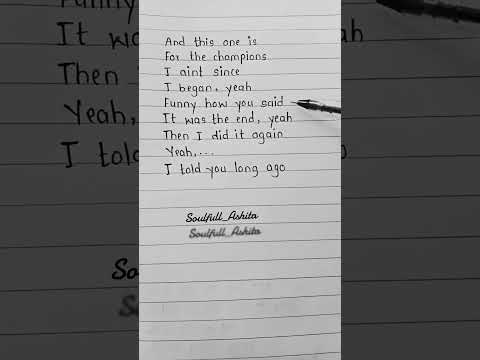 And this one is
For the champions
I aint since
I began, yeah
Funny how you said
It was the end, yeah
Then I did it again
Yeah,...
I told you long ago
Soulfull_Ashita
Soulfull_Ashita
Funny
It was
Then I
Yeah,
I told
ah
ago
So